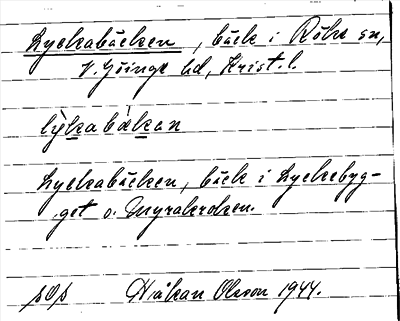 Lyckabäcken, bäck i Röke sn,
V. Göinge hd, Krist. l.
lỳkabäkan
Lyckabäcken, bäck i Lyckebyg-
get o. Myrakroken.
pOp Håkan Olsson 1944.